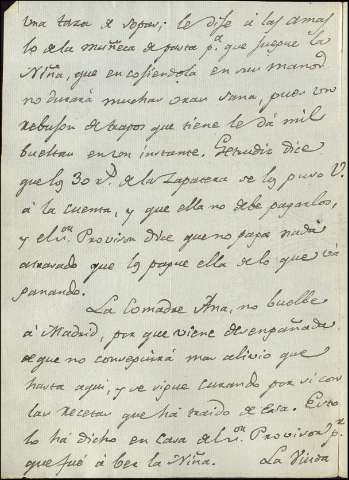 una taza de sopas; le dise á las amas
lo de la muñeca de pasta p.ª que juegue la
Niña, que en cojiendola en sus manos
no durará muchas oras sana, pues un
rebujon de trapos que tiene le dá mil
bueltas en un instante. Getrudis dice
que los 30 r.s de la Zapatera se los puso V.
á la cuenta, y que ella no debe pagarlos,
y el S.or Provisor dice que no paga nada
atrasado que los pague ella de lo que vá
ganando.
La Comadre Ana, no buelbe
á Madrid, por que viene desengañada
de que no conseguirá mas alivio que
hasta aqui, y se sigue curando por si con
las recetas que há traido de esa. Esto
lo há dicho en casa del S.or Provisor p.r
que fué á ber la Niña. La Viuda